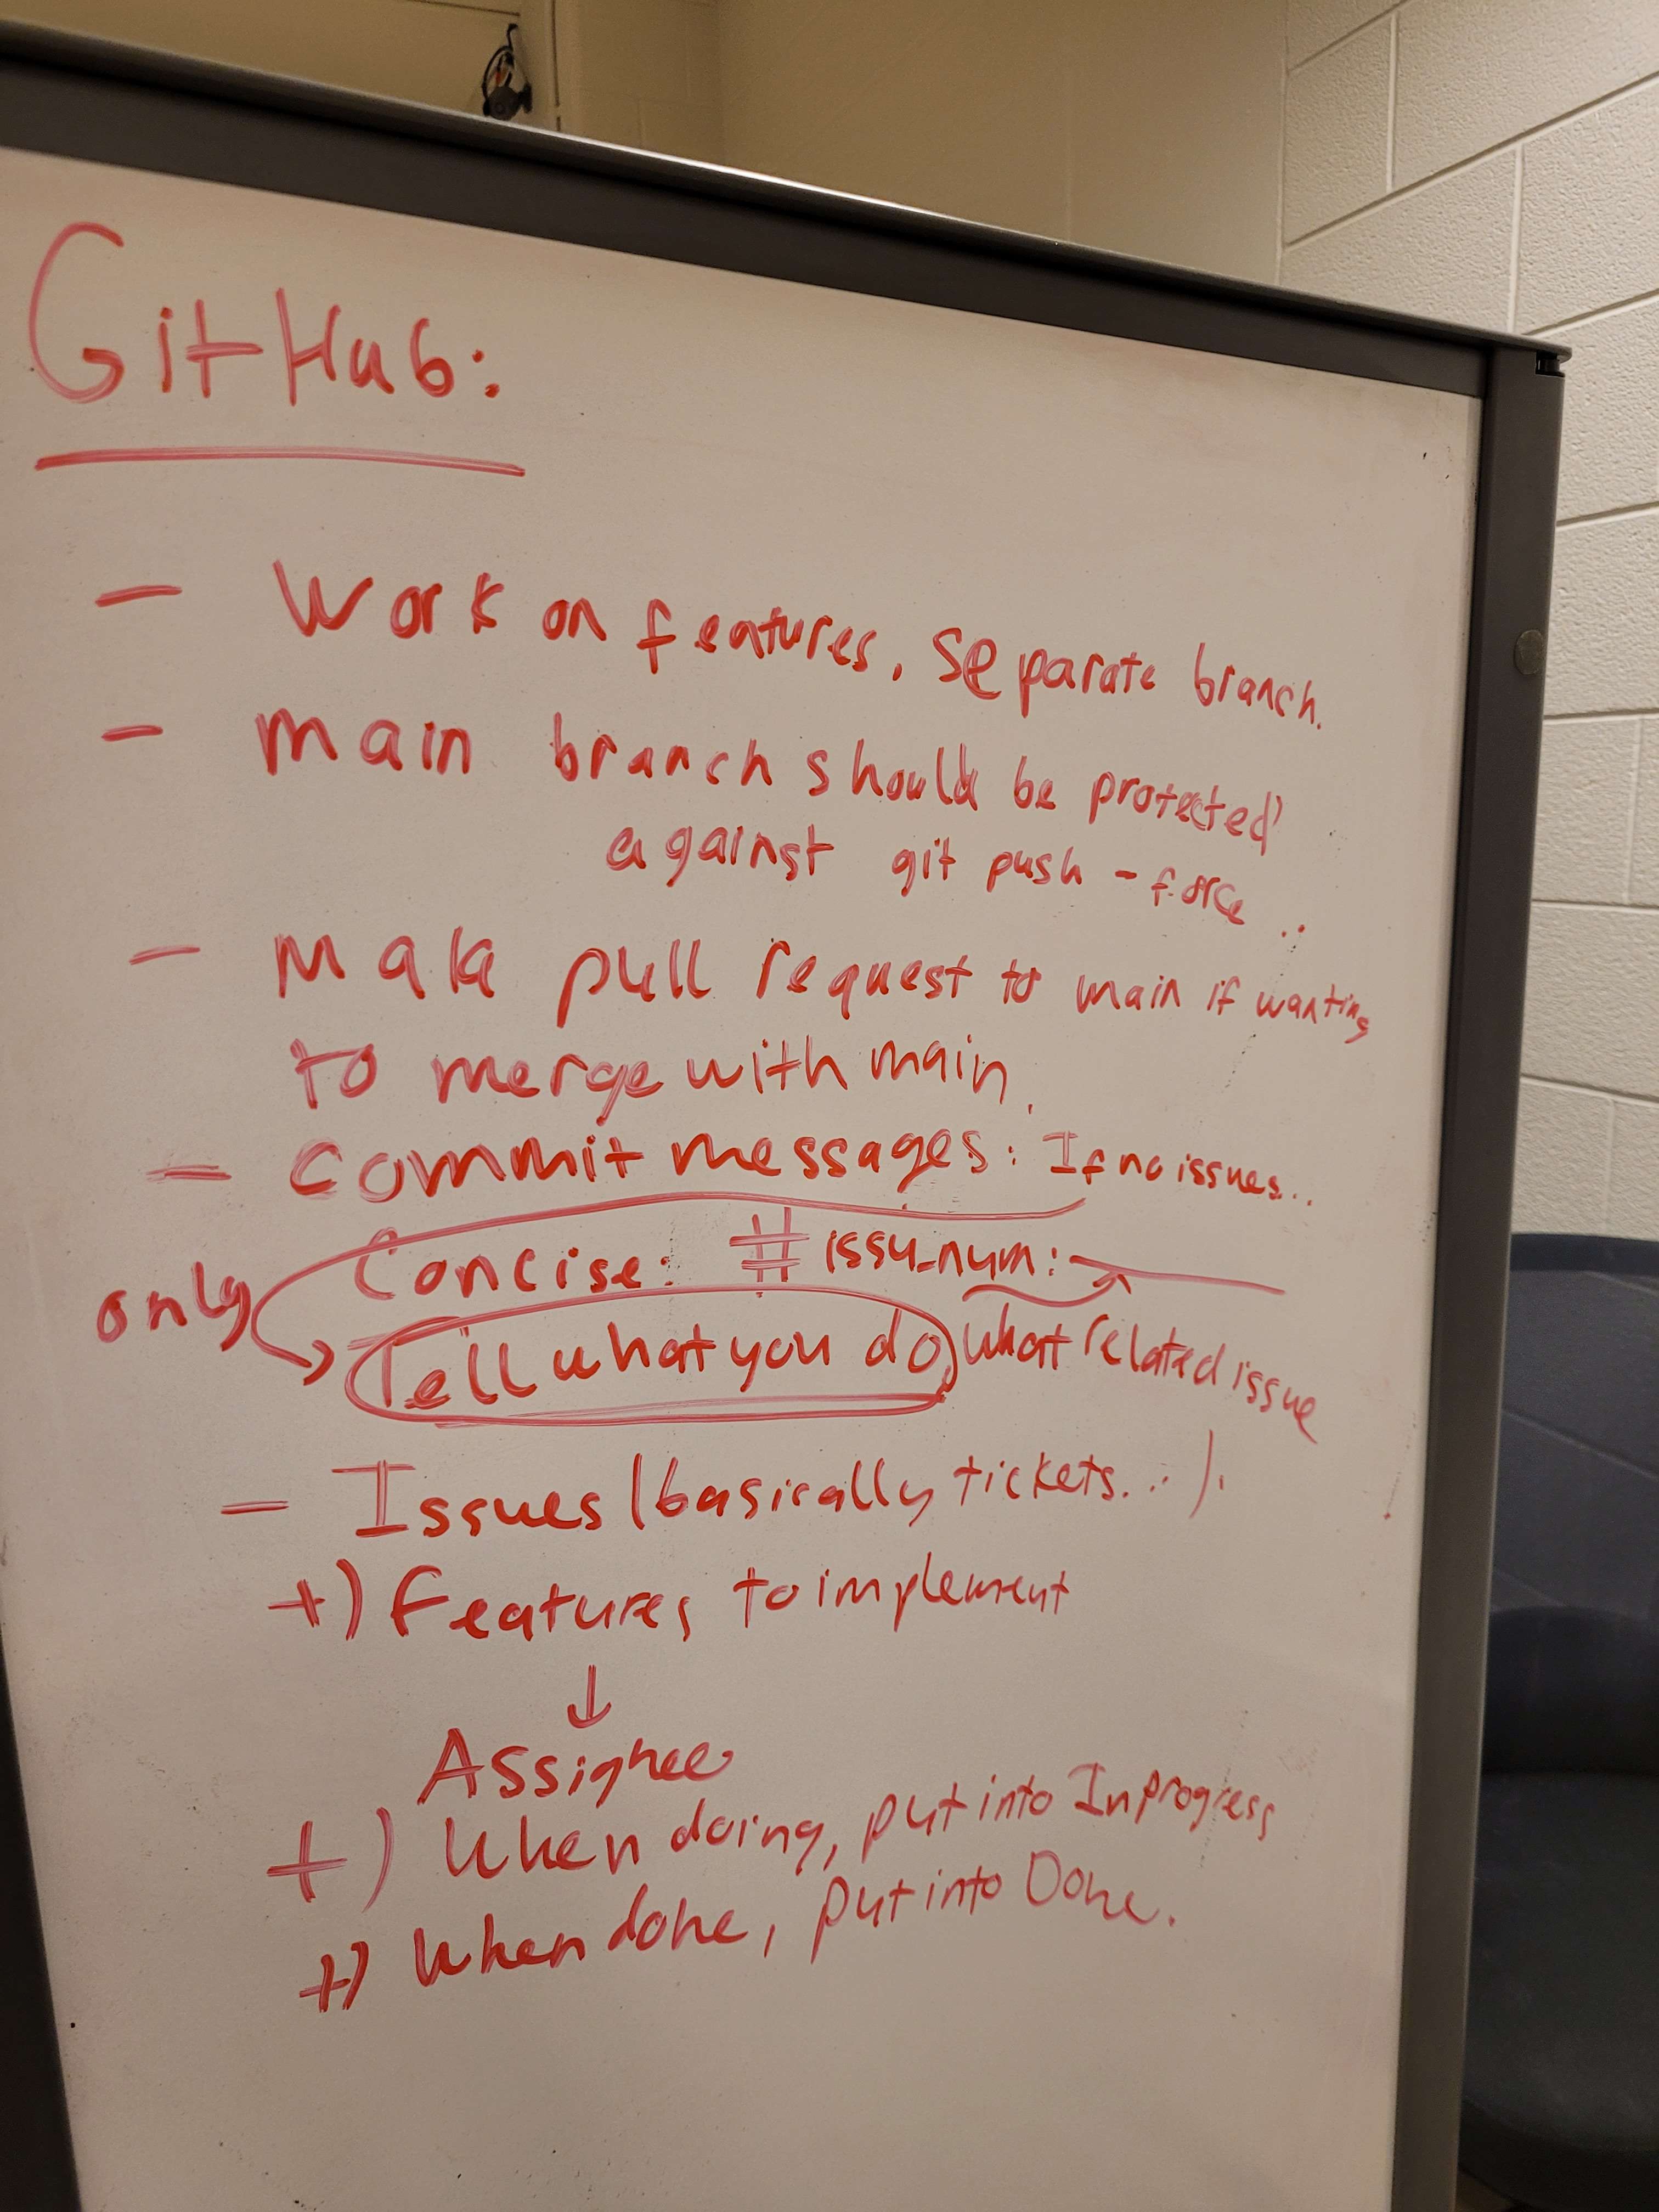 GitHub:
- Work on features, separate branch.
- main branch should be protected
against git push -force ..
- Make pull request to main if wanting
to merge with main.
- Commit messages: If no issues..
Concise: # issu_num:
only
Tell what you do, what related issue
- Issues (basically tickets...).
+) Features to implement
↓
Assignee
+) When doing, put into In progress
+) When done, put into Done.